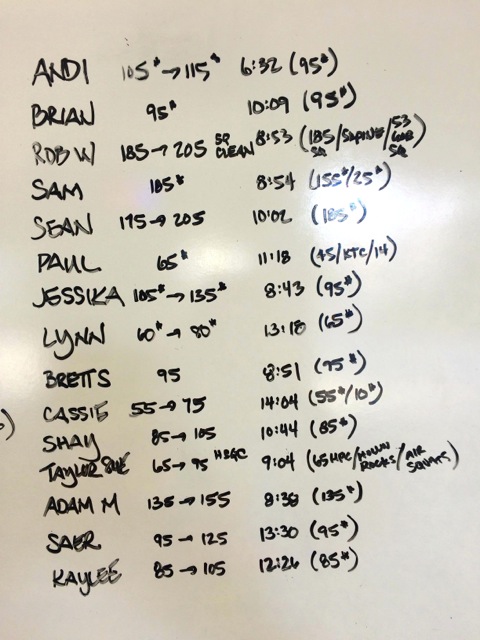 ANDI 105# → 115# 6:32 (95#)
BRIAN 95# 10:09 (95#)
ROB W 185 → 205 SQ CLEAN 8:53 (185/SUPINE/53 GOB SQ)
SAM 185# 8:54 (155#/25#)
SEAN 175 → 205 10:02 (185#)
PAUL 65# 11:18 (45/KTC/14)
JESSIKA 105# → 135# 8:43 (95#)
LYNN 60# → 80# 13:18 (65#)
BRETTS 95 8:51 (75#)
CASSIE 55 → 75 14:04 (55#/10#)
SHAY 85 → 105 10:44 (85#)
TAYLOR SUE 65 → 95 9:04 (65 HPC/ROCKS/AIR SQUATS)
ADAM M 135 → 155 8:38 (135#)
95 → 125 13:30 (95#)
KAYLEE 85 → 105 12:26 (85#)